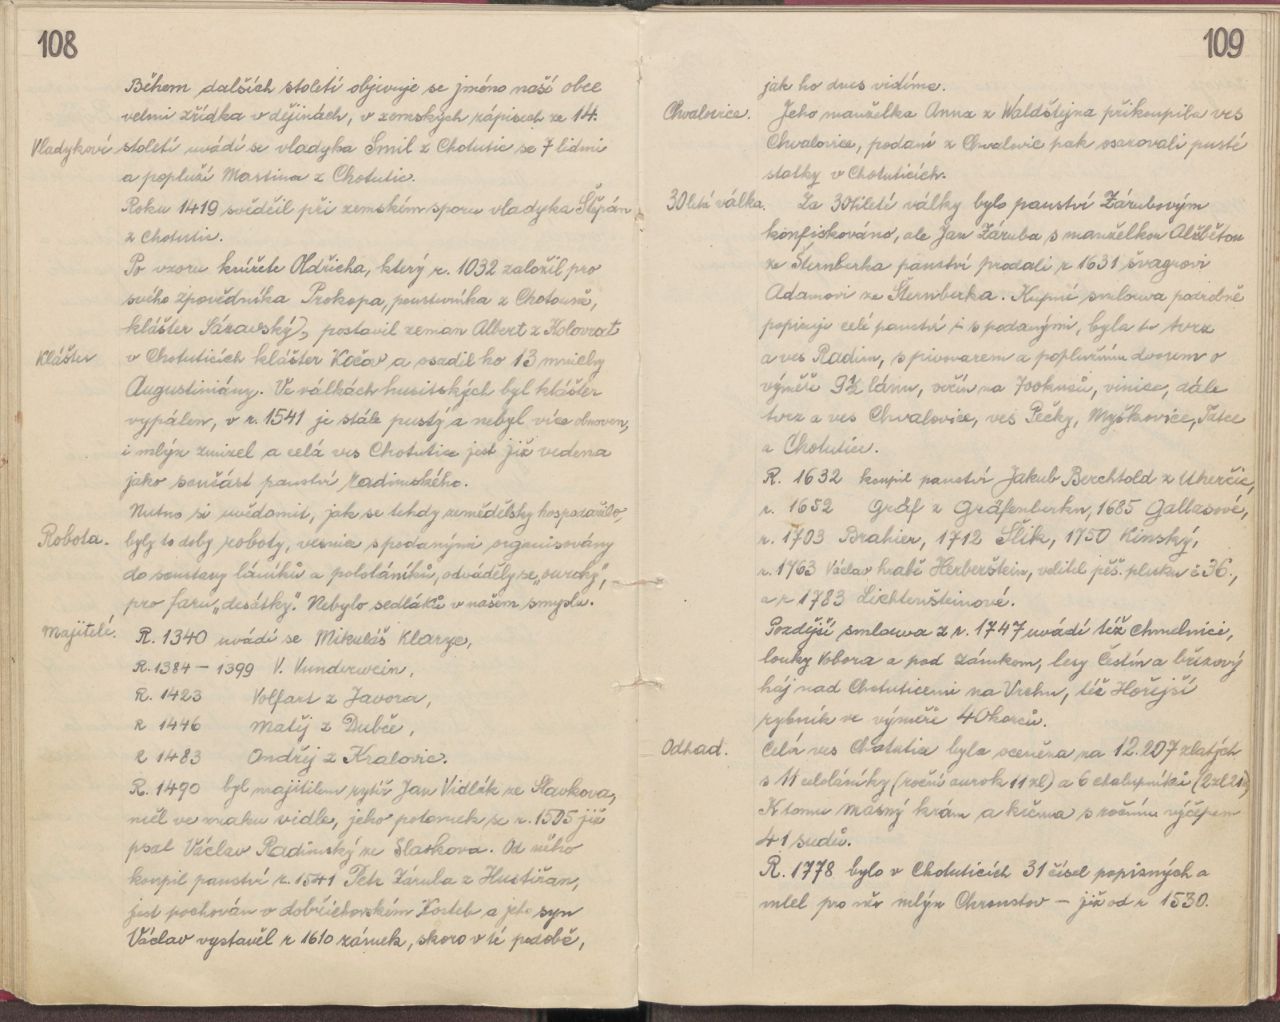 108
Během dalších století objevuje se jméno naší obce
velmi zřídka v dějinách, v zemských zápisech ze 14.
Vladykové století uvádí se vladyka Smil z Chotutic se 7 lidmi
a popluží Martina z Chotutic.
Roku 1419 svědčil při zemském sporu vladyka Štěpán
z Chotutic.
Po vzoru knížete Oldřicha, který r. 1032 založil pro
svého zpovědníka Prokopa, poustevníka z Chotouně,
klášter Sázavský, postavil zeman Albert z Kolovrat
Klášter v Chotuticích klášter a osadil ho 13 mnichy
Augustiniány. Ve válkách husitských byl klášter
vypálen, v r. 1541 je stále pustý a nebyl více obnoven,
i mlýn zmizel a celá ves Chotutice jest již vedena
jako součást panství radimského.
Nutno si uvědomit, jak se tehdy zemědělsky hospodařilo,
Robota. byly to doby roboty, vesnice s poddanými organisovány
do soustavy láníků a pololáníků, odváděly se „ouroky",
pro faru „desátky". Nebylo sedláků v našem smyslu.
Majitelé. R. 1340 uvádí se Mikuláš Klarze,
R. 1384 – 1399 V. Vunderwein,
R. 1423 Volfart z Javora,
R 1446 Matěj z Dubče,
R 1483 Ondřej z Kralovic.
R. 1490 byl majitelem rytíř Jan Vidlák ze Slavkova,
měl ve znaku vidle, jeho potomek se r. 1505 již
psal Václav Radimský ze Slavkova. Od něho
koupil panství r. 1541 Petr Záruba z Hustiřan,
jest pochován v dobřichovském kostele a jeho syn
Václav vystavěl r 1610 zámek, skoro v té podobě,
109
jak ho dnes vidíme.
Chvalovice. Jeho manželka Anna z Waldštejna přikoupila ves
Chvalovice, poddaní z Chvalovic pak osazovali pusté
statky v Chotuticích.
30letá válka. Za 30tileté války bylo panství Zárubovým
konfiskováno, ale Jan Záruba s manželkou Alžbětou
ze Šternberka panství prodali r 1631 švagrovi
Adamovi ze Šternberka. Kupní smlouva podrobně
popisuje celé panství i s poddanými, byla to tvrz
a ves Radim, s pivovarem a poplužním dvorem o
výměře 9½ lánu, ovčín na 700kusů, vinice, dále
tvrz a ves Chvalovice, ves Pečky, Myškovice, Tatce
a Chotutice.
R. 1632 koupil panství Jakub Berchtold z Uherčic,
r. 1652 Gräf z Gräfenberku, 1685 Gallasové,
r. 1703 Brahier, 1712 Šlik, 1750 Kinský,
r. 1763 Václav hrabě Herberštein, velitel pěš. pluku č 36.,
a r 1783 Lichtenšteinové.
Pozdější smlouva z r. 1747 uvádí též chmelnici,
louky Vobora a pod zámkem, lesy Čestín a březový
háj nad Chotuticemi na Vrchu, též Hořejší
rybník ve výměře 40 korců.
Odhad. Celá ves Chotutice byla oceněna na 12.207 zlatých
s 11 celoláníky (roční ourok 11 zl) a 6 chalupníků
K tomu masný krám a krčma s ročním výčepem
41 sudů.
R. 1778 bylo v Chotuticích 31 čísel popisných a
mlel pro něž mlýn Chroustov – již od r 1530.